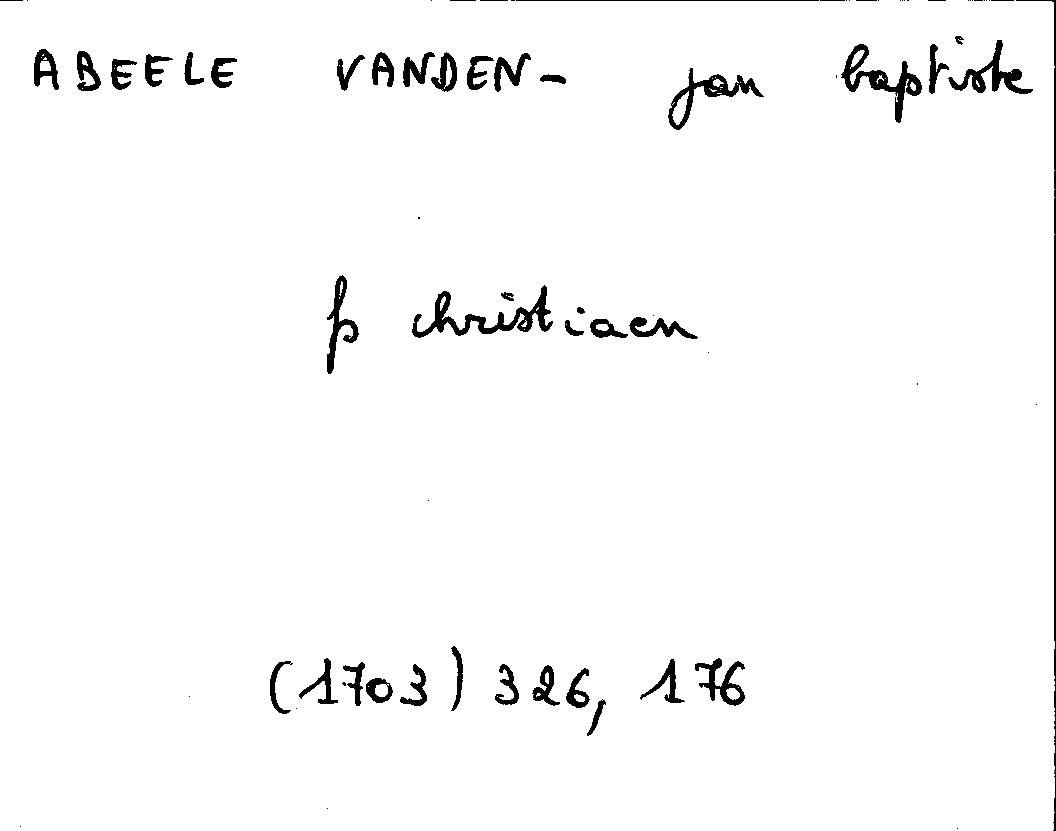 ABEELE VANDEN- jan baptiste
p christiaen
(1703) 326, 176